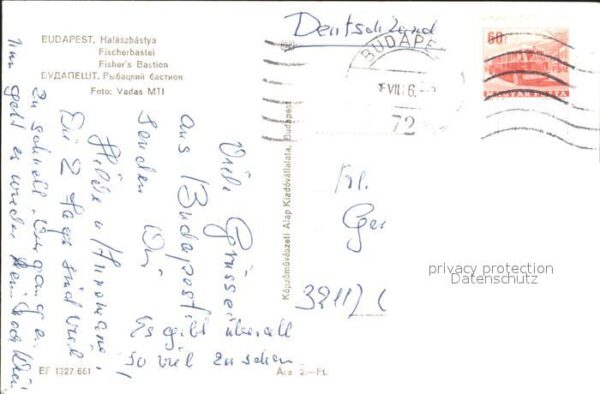 BUDAPEST, Halászbástya
Fischerbastei
Fisher's Bastion
БУДАПЕШТ, Рыбацкий бастион
Foto: Vadas MTI
Deutschland
BUDAPE
VII. 6.
72
60f
MAGYAR POSTA
Viele Grüsse
aus Budapest
senden Dir
Hilde u. Annemarie,
Die 2 Tage sind viel
zu schnell vergangen.
nun geht es wieder
Es gibt überall
so viel zu sehen.
Képzőművészeti Alap Kiadóvállalata, Budapest
Frl.
Ger
3211
privacy protection
Datenschutz
EF 1327.661
Ára 2.–Ft.